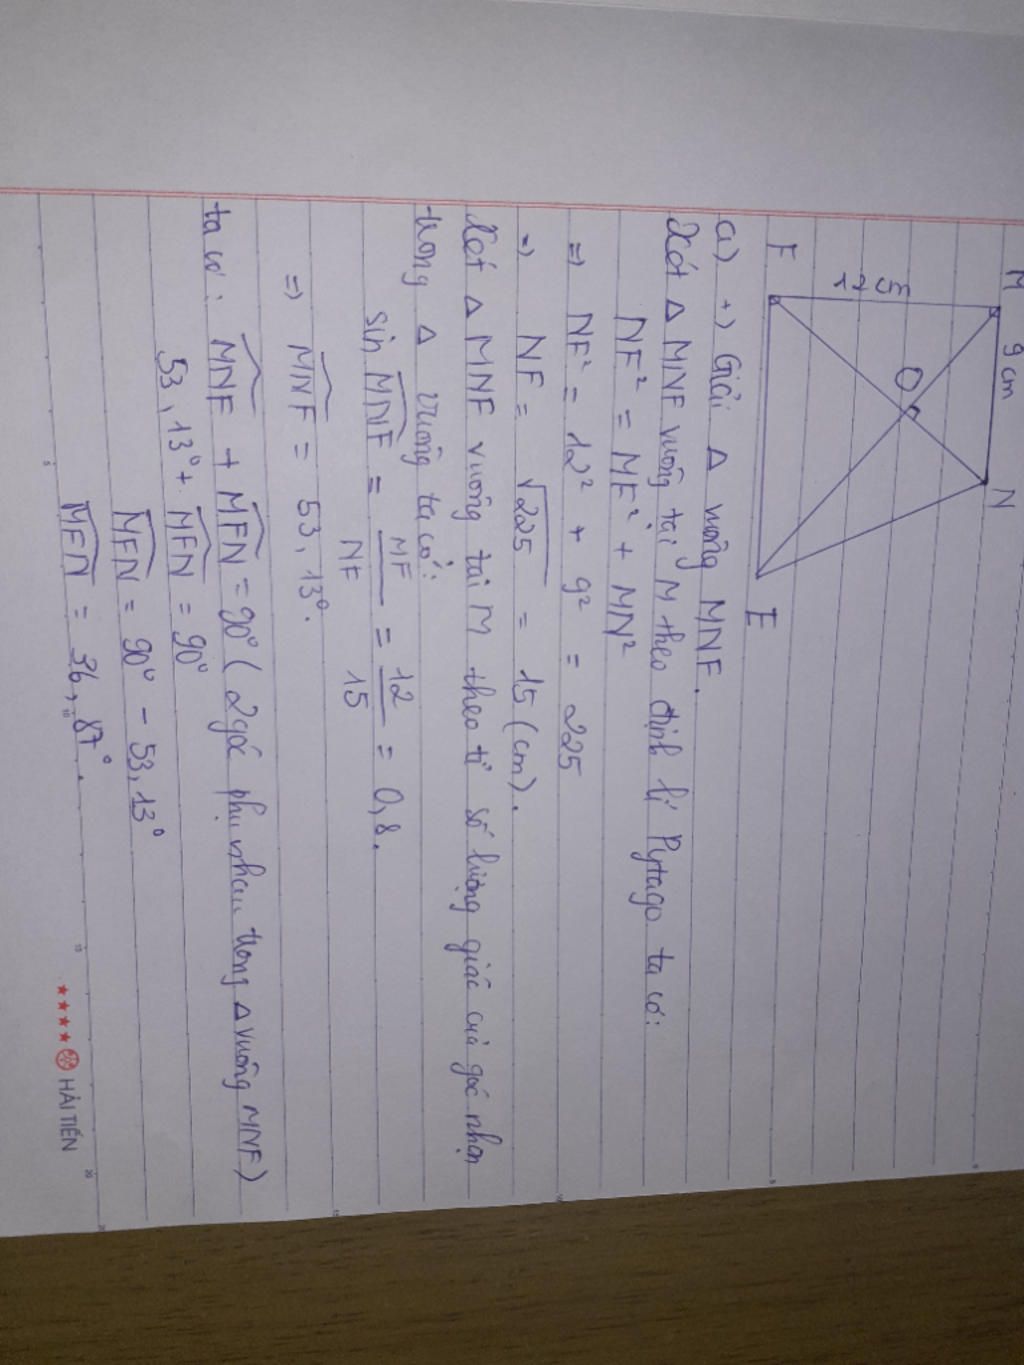 M 9 cm N
12 cm
O
F E
a) +) Giải Δ vuông MNF.
Xét Δ MNF vuông tại M theo định lí Pytago ta có:
NF² = MF² + MN²
=) NF² = 12² + 9² = 225
=) NF = √225 = 15 (cm).
Xét Δ MNF vuông tại M theo tỉ số lượng giác của góc nhọn
trong Δ vuông ta có:
sin MNF = MF/NF = 12/15 = 0,8.
=) MNF = 53,13°.
ta có: MNF + MFN = 90° (2 góc phụ nhau trong Δ vuông MNF)
53,13° + MFN = 90°
MFN = 90° - 53,13°
MFN = 36,87°.
HẢI TIẾN